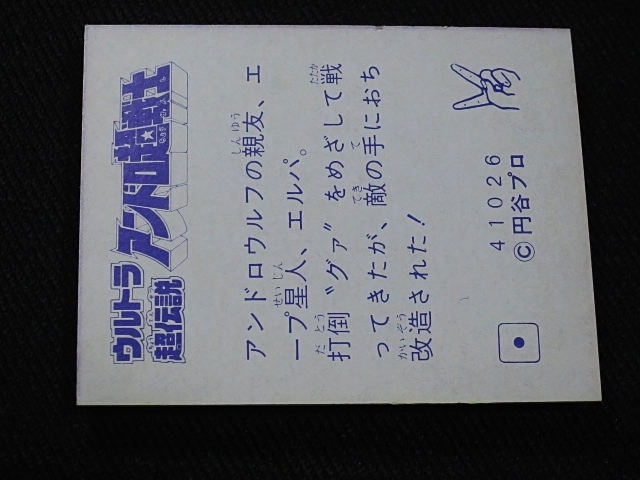 ウルトラ
超伝説
アンドロ超戦士
アンドロウルフの親友、エ
ープ星人、エルパ。
打倒〝グァ〟をめざして戦
ってきたが、敵の手におち
改造された!
41026
©円谷プロ